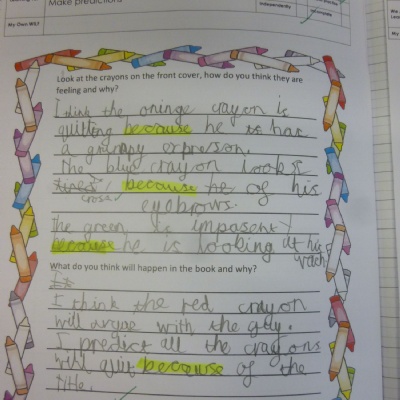 Make predictions
Independently
My Own WILF
Look at the crayons on the front cover, how do you think they are
feeling and why?
I think the oringe crayon is
quitting because he is has
a grumpy expresson.
The blue crayon looks
tired because he of his
cross
eyebrows.
The green is impasent
because he is looking at his
wach
What do you think will happen in the book and why?
I think the red crayon
will argue with the guy.
I predict all the crayons
will quit because of the
title.